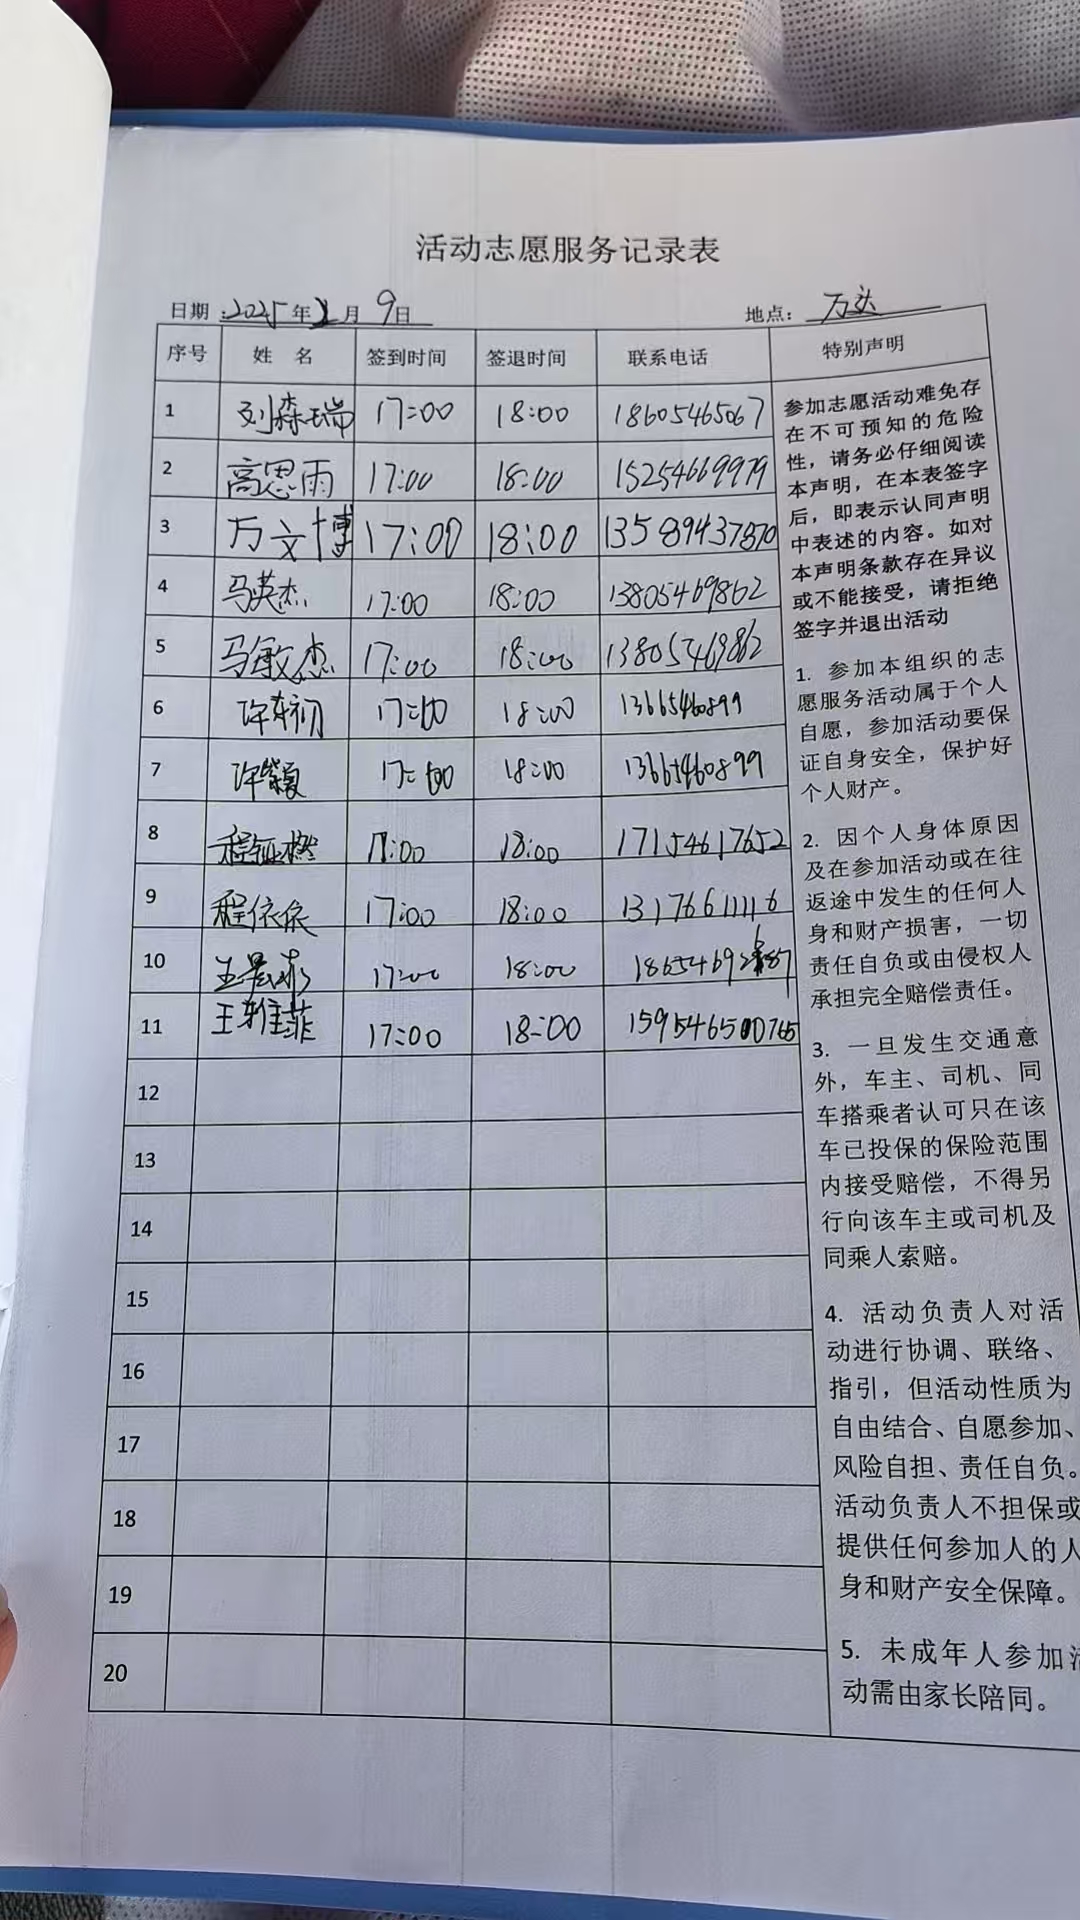 活动志愿服务记录表
日期：2025年2月9日 地点：万达
序号 姓 名 签到时间 签退时间 联系电话 特别声明
1 刘森瑞 17:00 18:00 18605465067
2 高思雨 17:00 18:00 15254669979
3 万文博 17:00 18:00 13589437870
4 马英杰 17:00 18:00 13805469862
5 马敏杰 17:00 18:00 13805469862
6 17:00 18:00 13665460899
7 许馨夏 17:00 18:00 13665460899
8 17:00 18:00 17154617652
9 程依依 17:00 18:00 13176611116
10 17:00 18:00
11 17:00 18:00
12
13
14
15
16
17
18
19
20
参加志愿活动难免存
在不可预知的危险
性，请务必仔细阅读
本声明，在本表签字
后，即表示认同声明
中表述的内容。如对
本声明条款存在异议
或不能接受，请拒绝
签字并退出活动
1. 参加本组织的志
愿服务活动属于个人
自愿，参加活动要保
证自身安全，保护好
个人财产。
2. 因个人身体原因
及在参加活动或在往
返途中发生的任何人
身和财产损害，一切
责任自负或由侵权人
承担完全赔偿责任。
3. 一旦发生交通意
外，车主、司机、同
车搭乘者认可只在该
车已投保的保险范围
内接受赔偿，不得另
行向该车主或司机及
同乘人索赔。
4. 活动负责人对活
动进行协调、联络、
指引，但活动性质为
自由结合、自愿参加、
风险自担、责任自负。
活动负责人不担保或
提供任何参加人的人
身和财产安全保障。
5. 未成年人参加活
动需由家长陪同。